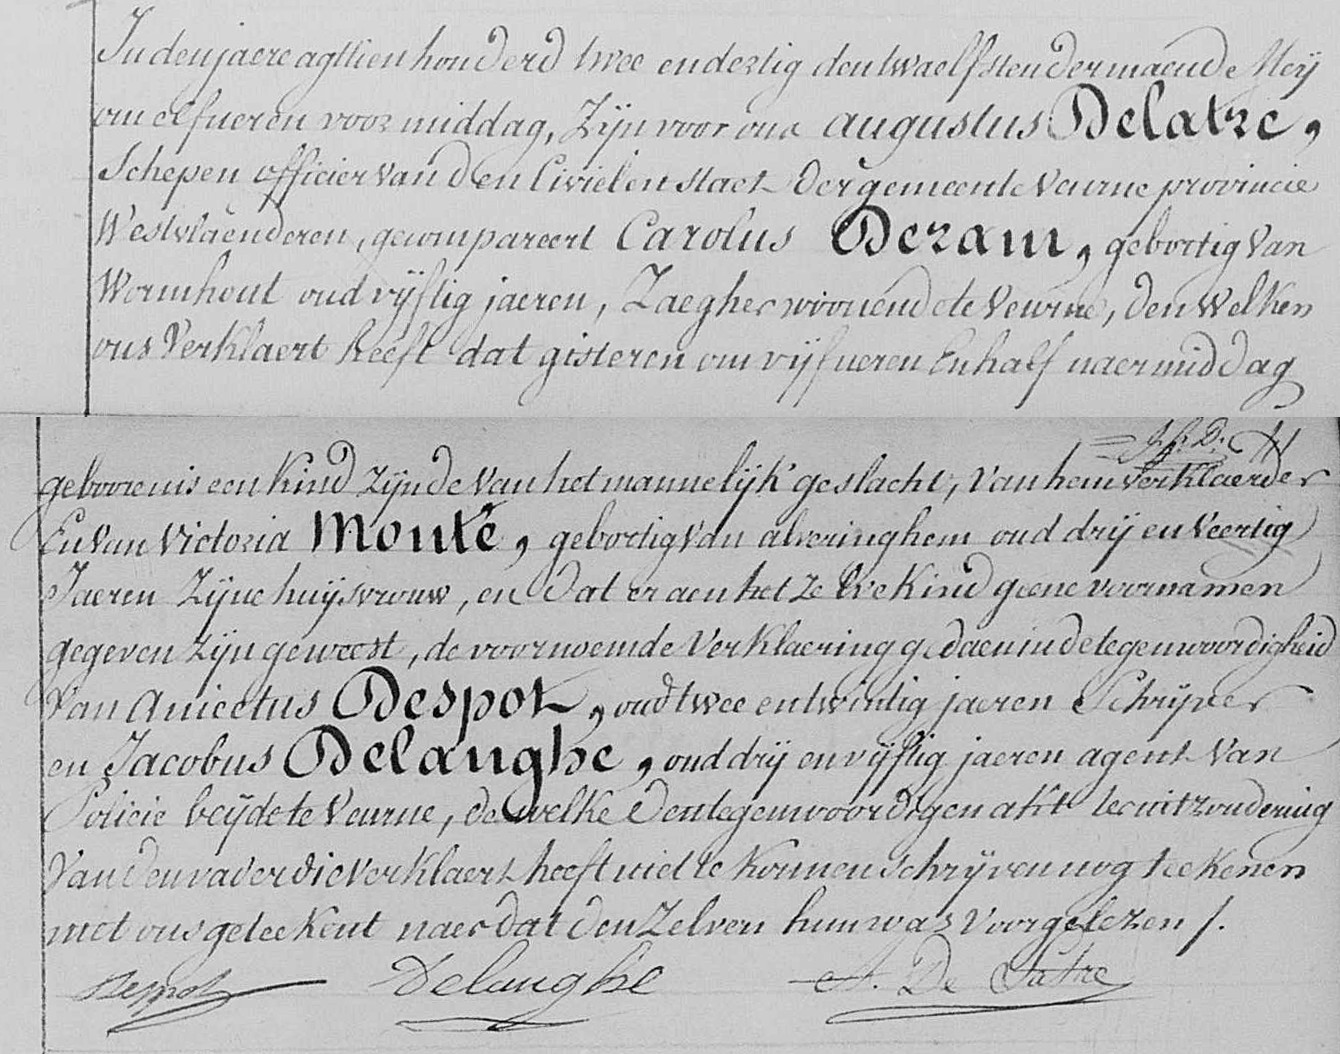 In den jaere agttien honderd twee en dertig den twaelfsten der maend Meij
om elf ueren voormiddag, Zijn voor ons augustus Delatre,
Schepen officier van den Civielen staet der gemeente Veurne provincie
Westvlaenderen, gecompareert Carolus Deram, gebortig van
Wormhout oud vijftig jaeren, Zaegher woonende te Veurne, den welken
ons Verklaert heeft dat gisteren om vijf ueren En half naermiddag
gebooren is een Kind Zijnde van het mannelijk geslacht, van hem verklaerder
En van Victoria Monte, gebortig van alveringhem oud drij en veertig
Jaeren Zijne huijsvrouw, en dat er aen het Zelve Kind geene voornamen
gegeven zijn geweest, de voornoemde Verklaering gedaen in de tegenwoordigheid
Van Anicetus Despot, oud twee en twintig jaeren Schrijver
en Jacobus Delanghe, oud drij en vijftig jaeren agent van
Policie beijde te Veurne, de welke den tegenwoordigen akt ter uitzondering
Van den vader die Verklaert heeft niet te konnen schrijven nog teekenen
met ons geteekent naer dat den Zelven hun was voorgelezen /.
Despot Delanghe A. De Latre